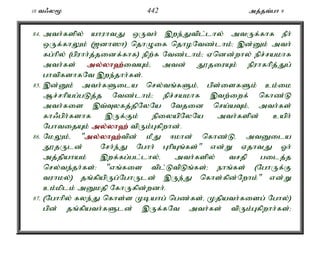 10 வஃலமூ 442 அத்தவ்பா 9
84. அவர்களில் யாராவது ஒருவர் இறந்துவிட்டால் அவருக்காக நீர்
ஒருக்காலும் (ஜனாஸா) தொழுகை தொழவேண்டாம்; இன்னும் அவர்
கப்ரில் (பிரார்த்தனைக்காக) நிற்க வேண்டாம்; ஏனென்றால் நிச்சயமாக
அவர்கள் அல்லாஹ்வையும், அவன் தூதரையும் நிராகரித்துப்
பாவிகளாகவே இறந்தார்கள்.
85. இன்னும் அவர்களுடைய செல்வங்களும், பிள்ளைகளும் உம்மை
ஆச்சரியப்படுத்த வேண்டாம்; நிச்சயமாக இவற்றைக் கொண்டு
அவர்களை இவ்வுலகத்திலேயே வேதனை செய்யவும், அவர்கள்
காஃபிர்களாக இருக்கும் நிலையிலேயே அவர்களின் உயிர்
போவதையும் அல்லாஹ் விரும்புகிறான்.
86. மேலும், "அல்லாஹ்வின் மீது ஈமான் கொண்டு, அவனுடைய
தூதருடன் சேர்ந்து போர் புரியுங்கள்" என்று ஏதாவது ஓர்
அத்தியாயம் இறக்கப்பட்டால், அவர்களில் வசதி படைத்த
செல்வந்தர்கள்: "எங்களை விட்டுவிடுங்கள்; நாங்கள் (போருக்கு
வராமல்) தங்கியிருப்போருடன் இருந்து கொள்கின்றோம்" என்று
உம்மிடம் அனுமதி கோருகின்றனர்.
87. (போரில் கலந்து கொள்ள முடியாப் பெண்கள், முதியவர்களைப் போல்)
பின் தங்கியவர்களுடன் இருக்கவே அவர்கள் விரும்புகிறார்கள்;